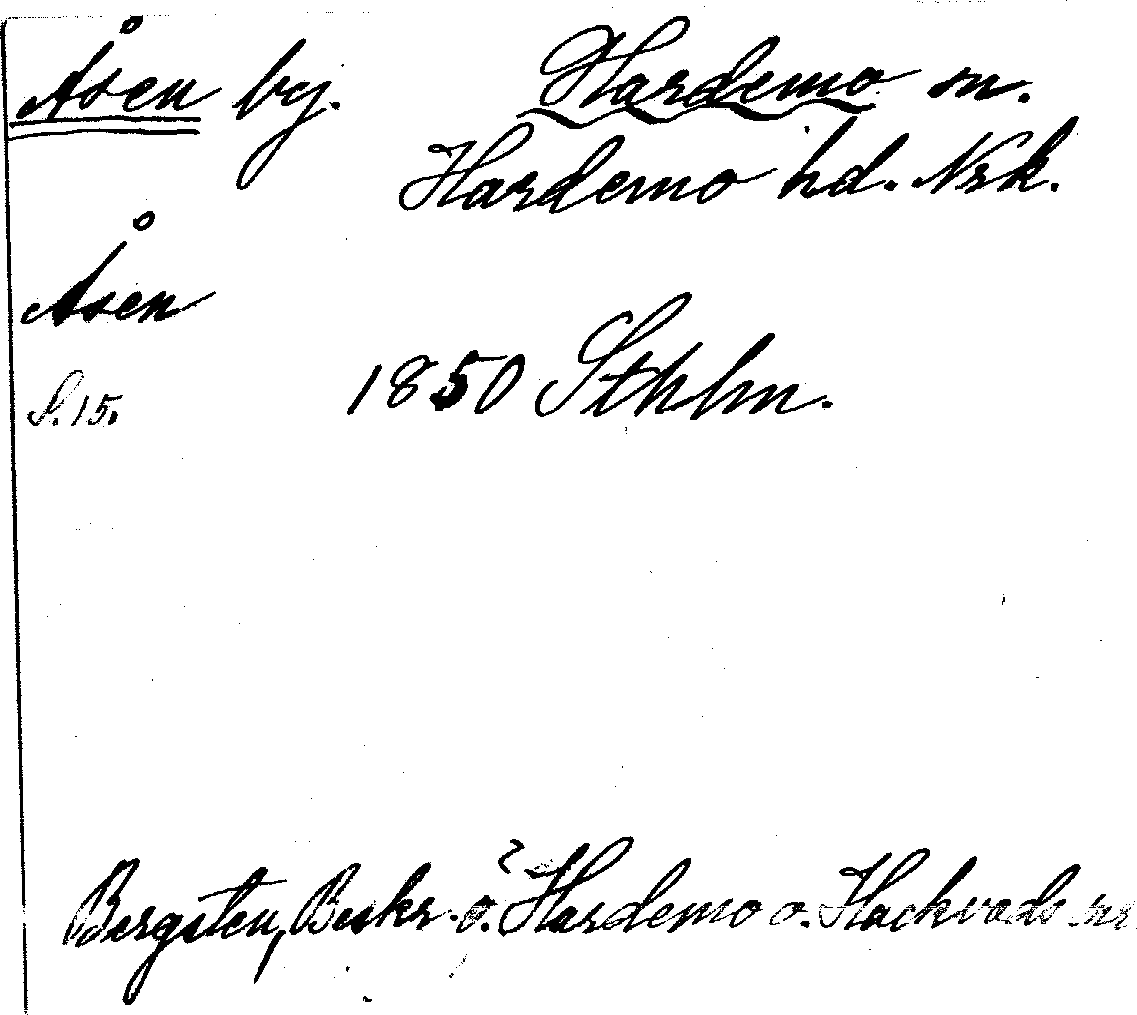 Åsen by. Hardemo sn.
Hardemo hd. Nrk.
Åsen
S. 15. 1850 Sthlm.
Bergsten, Beskr. ö. Hardemo o. Hackvads sn